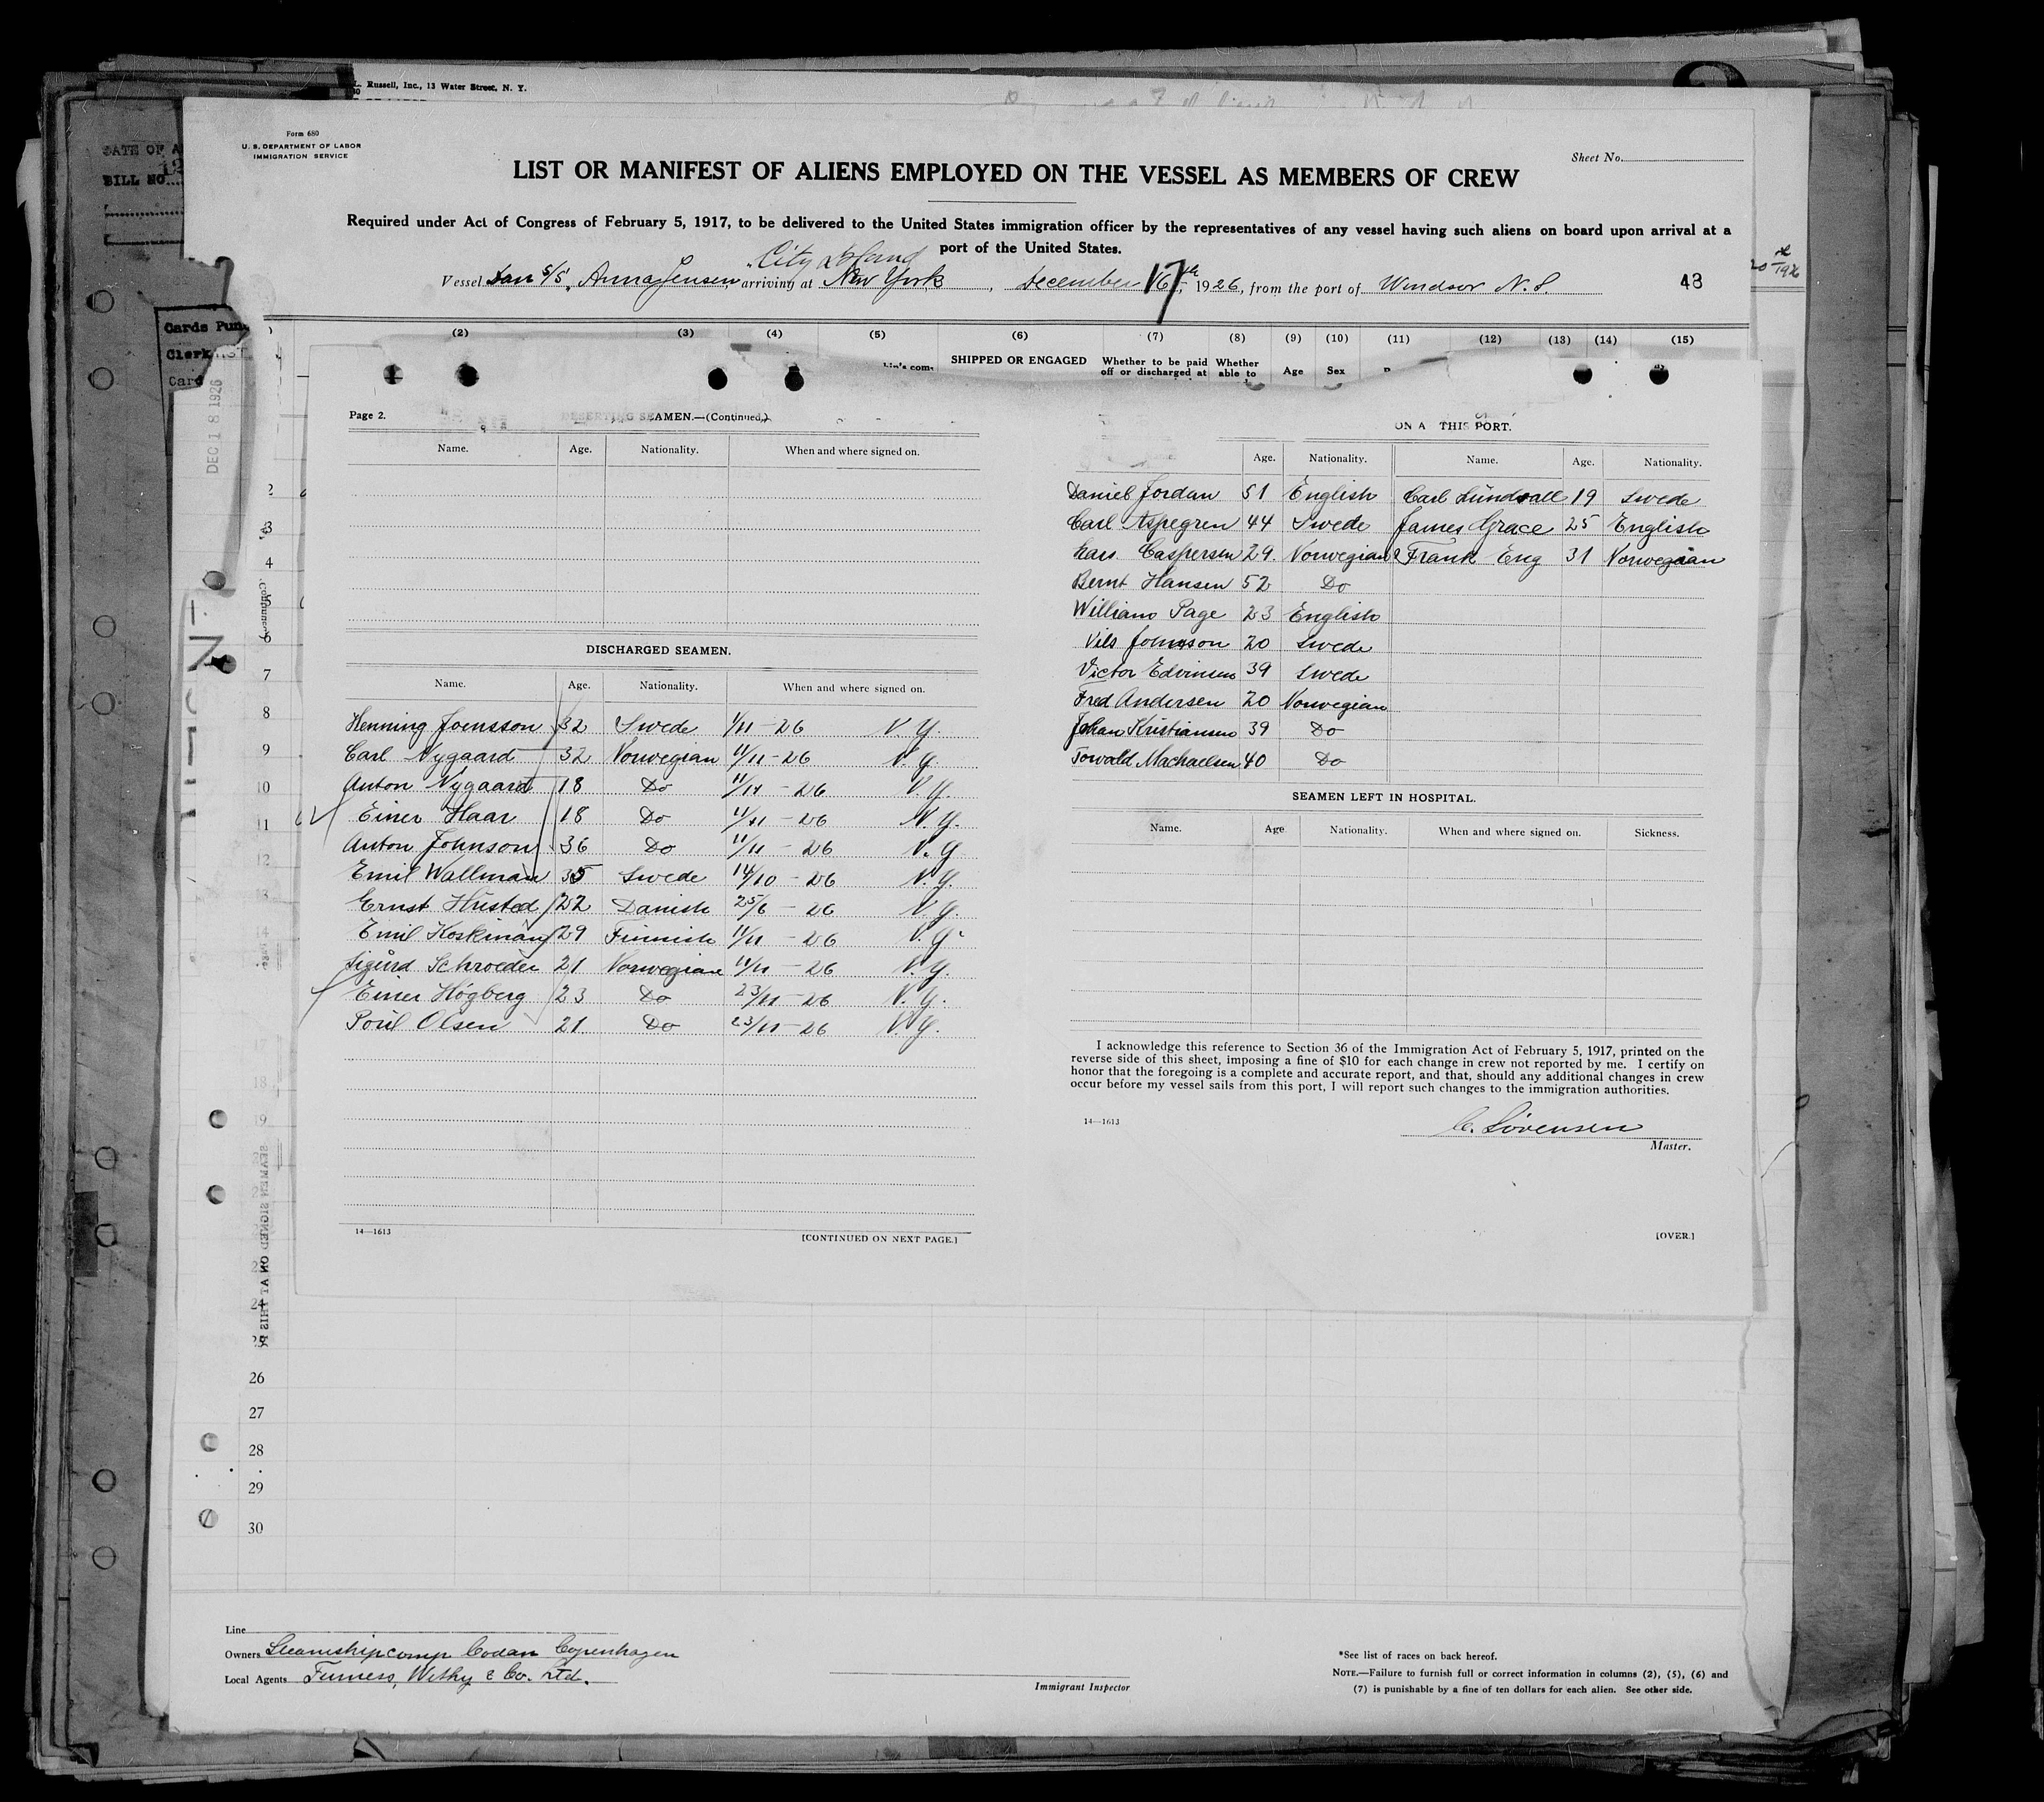 L. Russell, Inc., 13 Water Street, N. Y.
DATE OF A
BILL NO.
Cards Pun
Clerk
Card
DEC 18 1926
Form 680
U. S. DEPARTMENT OF LABOR
IMMIGRATION SERVICE
Sheet No.
LIST OR MANIFEST OF ALIENS EMPLOYED ON THE VESSEL AS MEMBERS OF CREW
Required under Act of Congress of February 5, 1917, to be delivered to the United States immigration officer by the representatives of any vessel having such aliens on board upon arrival at a
port of the United States.
City Island
Vessel Dan S/S. Anna Jensen arriving at New York, December 17th, 1926, from the port of Windsor N.S. 43
(2) (3) (4) (5) (6) (7) (8) (9) (10) (11) (12) (13) (14) (15)
SHIPPED OR ENGAGED Whether to be paid off or discharged at Whether able to Age Sex
Page 2. DESERTING SEAMEN.—(Continued.)
Name. Age. Nationality. When and where signed on.
DISCHARGED SEAMEN.
Name. Age. Nationality. When and where signed on.
Henning Joensson 32 Swede 1/11-26 N.Y.
Carl Nygaard 32 Norwegian 11/11-26 N.Y.
Anton Nygaard 18 Do 11/11-26 N.Y.
Einer Haar 18 Do 11/11-26 N.Y.
Anton Johnson 36 Do 11/11-26 N.Y.
Emil Wallman 35 Swede 14/10-26 N.Y.
Ernst Husted 22 Danish 25/6-26 N.Y.
Emil Koskinan 29 Finnish 11/11-26 N.Y.
Sigurd Schroeder 21 Norwegian 11/11-26 N.Y.
Einer Høgberg 23 Do 23/11-26 N.Y.
Poul Olsen 21 Do 23/11-26 N.Y.
14—1613 [CONTINUED ON NEXT PAGE.]
ON A THIS PORT.
Age. Nationality. Name. Age. Nationality.
Daniel Jordan 51 English Carl Lundvall 19 Swede
Carl Aspegren 44 Swede James Grace 25 English
Lars Caspersen 29 Norwegian Frank Eng 31 Norwegian
Bernt Hansen 52 Do
William Page 23 English
Nils Johnsson 20 Swede
Victor Edvinsen 39 Swede
Fred Andersen 20 Norwegian
Johan Kristiansen 39 Do
Torvald Machaelsen 40 Do
SEAMEN LEFT IN HOSPITAL.
Name. Age Nationality. When and where signed on. Sickness.
I acknowledge this reference to Section 36 of the Immigration Act of February 5, 1917, printed on the
reverse side of this sheet, imposing a fine of $10 for each change in crew not reported by me. I certify on
honor that the foregoing is a complete and accurate report, and that, should any additional changes in crew
occur before my vessel sails from this port, I will report such changes to the immigration authorities.
14—1613
C. Sörensen
Master.
[OVER.]
2
3
4
5
6
7
8
9
10
11
12
13
14
17
18
19
24
25
26
27
28
29
30
SEAMEN SIGNED ON AT THIS PO
Line
Owners Steamshipcomp Codan Copenhagen
Local Agents Furness, Withy & Co. Ltd.
Immigrant Inspector
*See list of races on back hereof.
NOTE.—Failure to furnish full or correct information in columns (2), (5), (6) and
(7) is punishable by a fine of ten dollars for each alien. See other side.